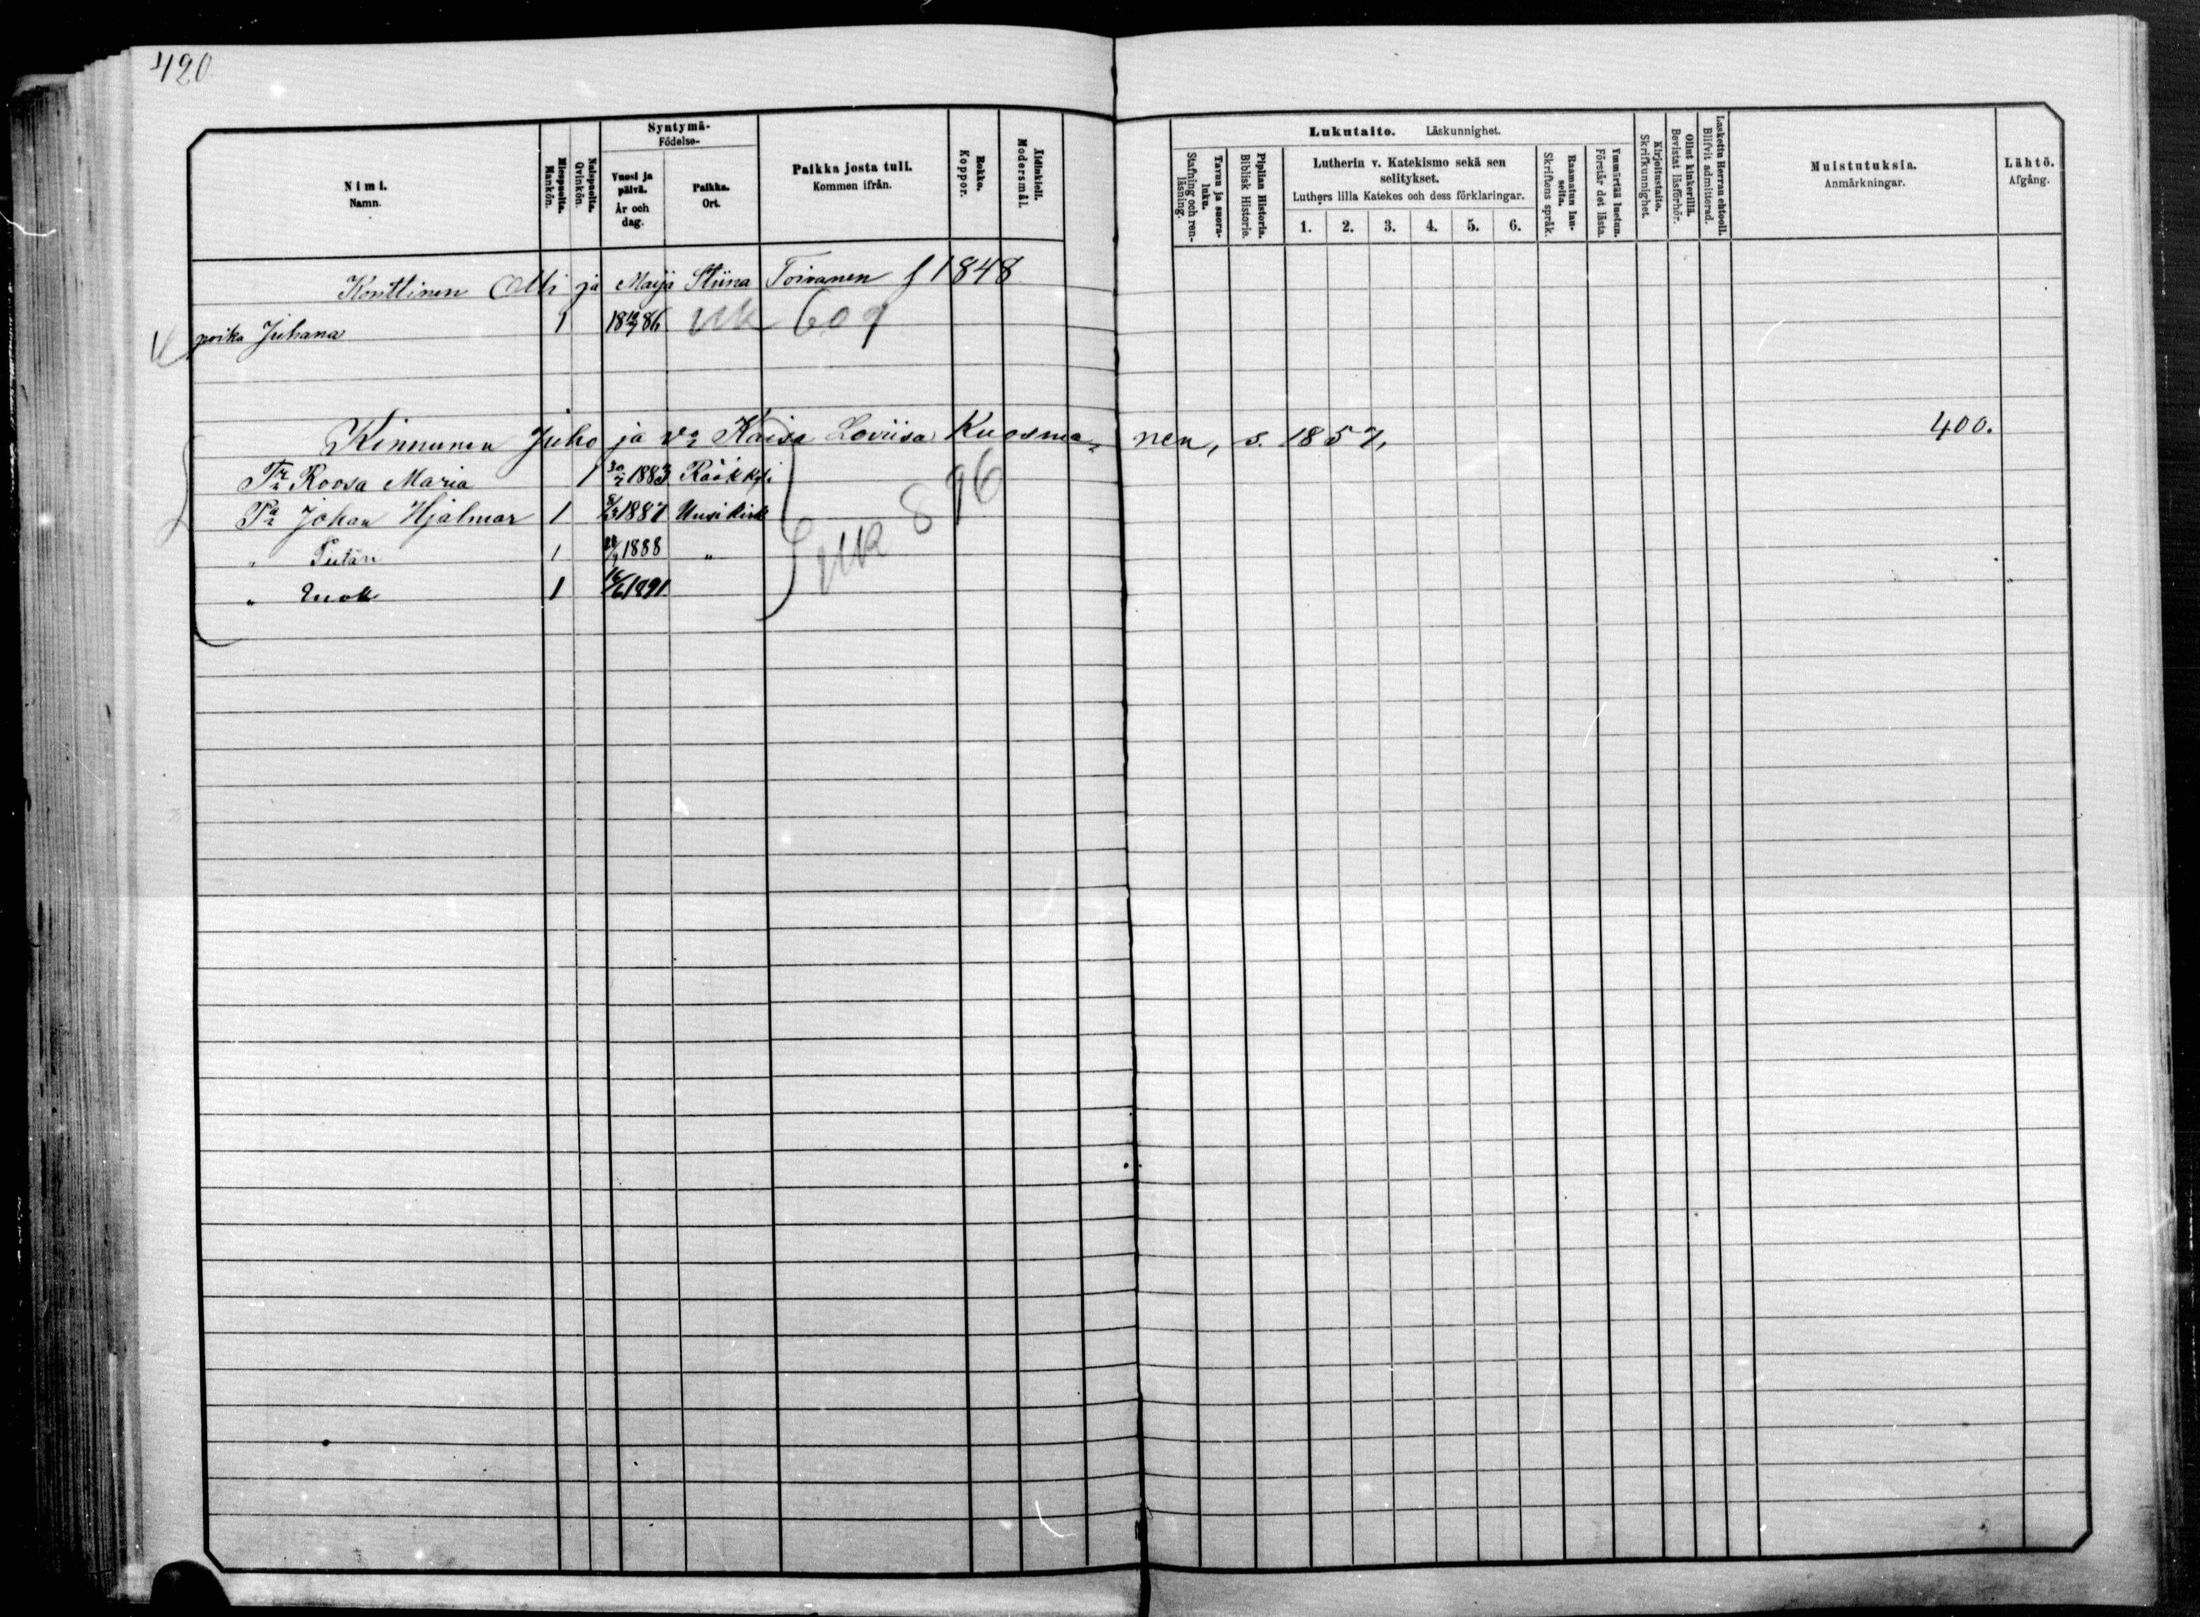 420
Nimi. Namn.
Miespuolta. Mankön.
Naispuolta. Qvinkön.
Syntymä- Födelse-
Vuosi ja päivä. År och dag.
Paikka. Ort.
Paikka josta tuli. Kommen ifrån.
Rokko. Koppor.
Äidinkieli. Modersmål.
Lukutaito. Läskunnighet.
Tavuu ja suora-luku. Stafning och ren-läsning.
Piplian Historia. Biblisk Historie.
Lutherin v. Katekismo sekä sen selitykset.
Luthers lilla Katekes och dess förklaringar.
1. 2. 3. 4. 5. 6.
Raamatun lau-seita. Skriftens språk.
Ymmärtää luetun. Förstår det lästa.
Kirjoitustaito. Skrifkunnighet.
Ollut kinkerillä. Bevistat läsförhör.
Laskettu Herran ehtooll. Blifvit admitterad.
Muistutuksia. Anmärkningar.
Lähtö. Afgång.
Konttinen Olli ja Maija Stiina Toivanen f 1848
poika Juhana 1 86 uk 609
Kinnunen Juho ja vo Kaisa Loviisa Kuosma- nen, s. 1857, 400.
Tr Roosa Maria 1 1883 Rääkkyli
Pa Johan Hjalmar 1 8/3 1887 Uusikirk
" 1 1888 " uk 896
" Enok 1 16/6 1891